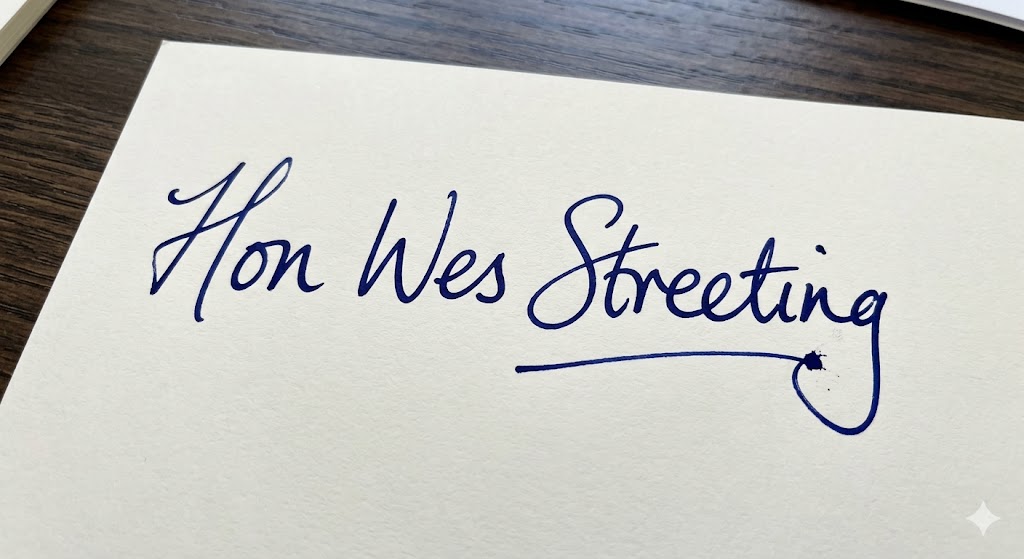 Hon Wes Streeting